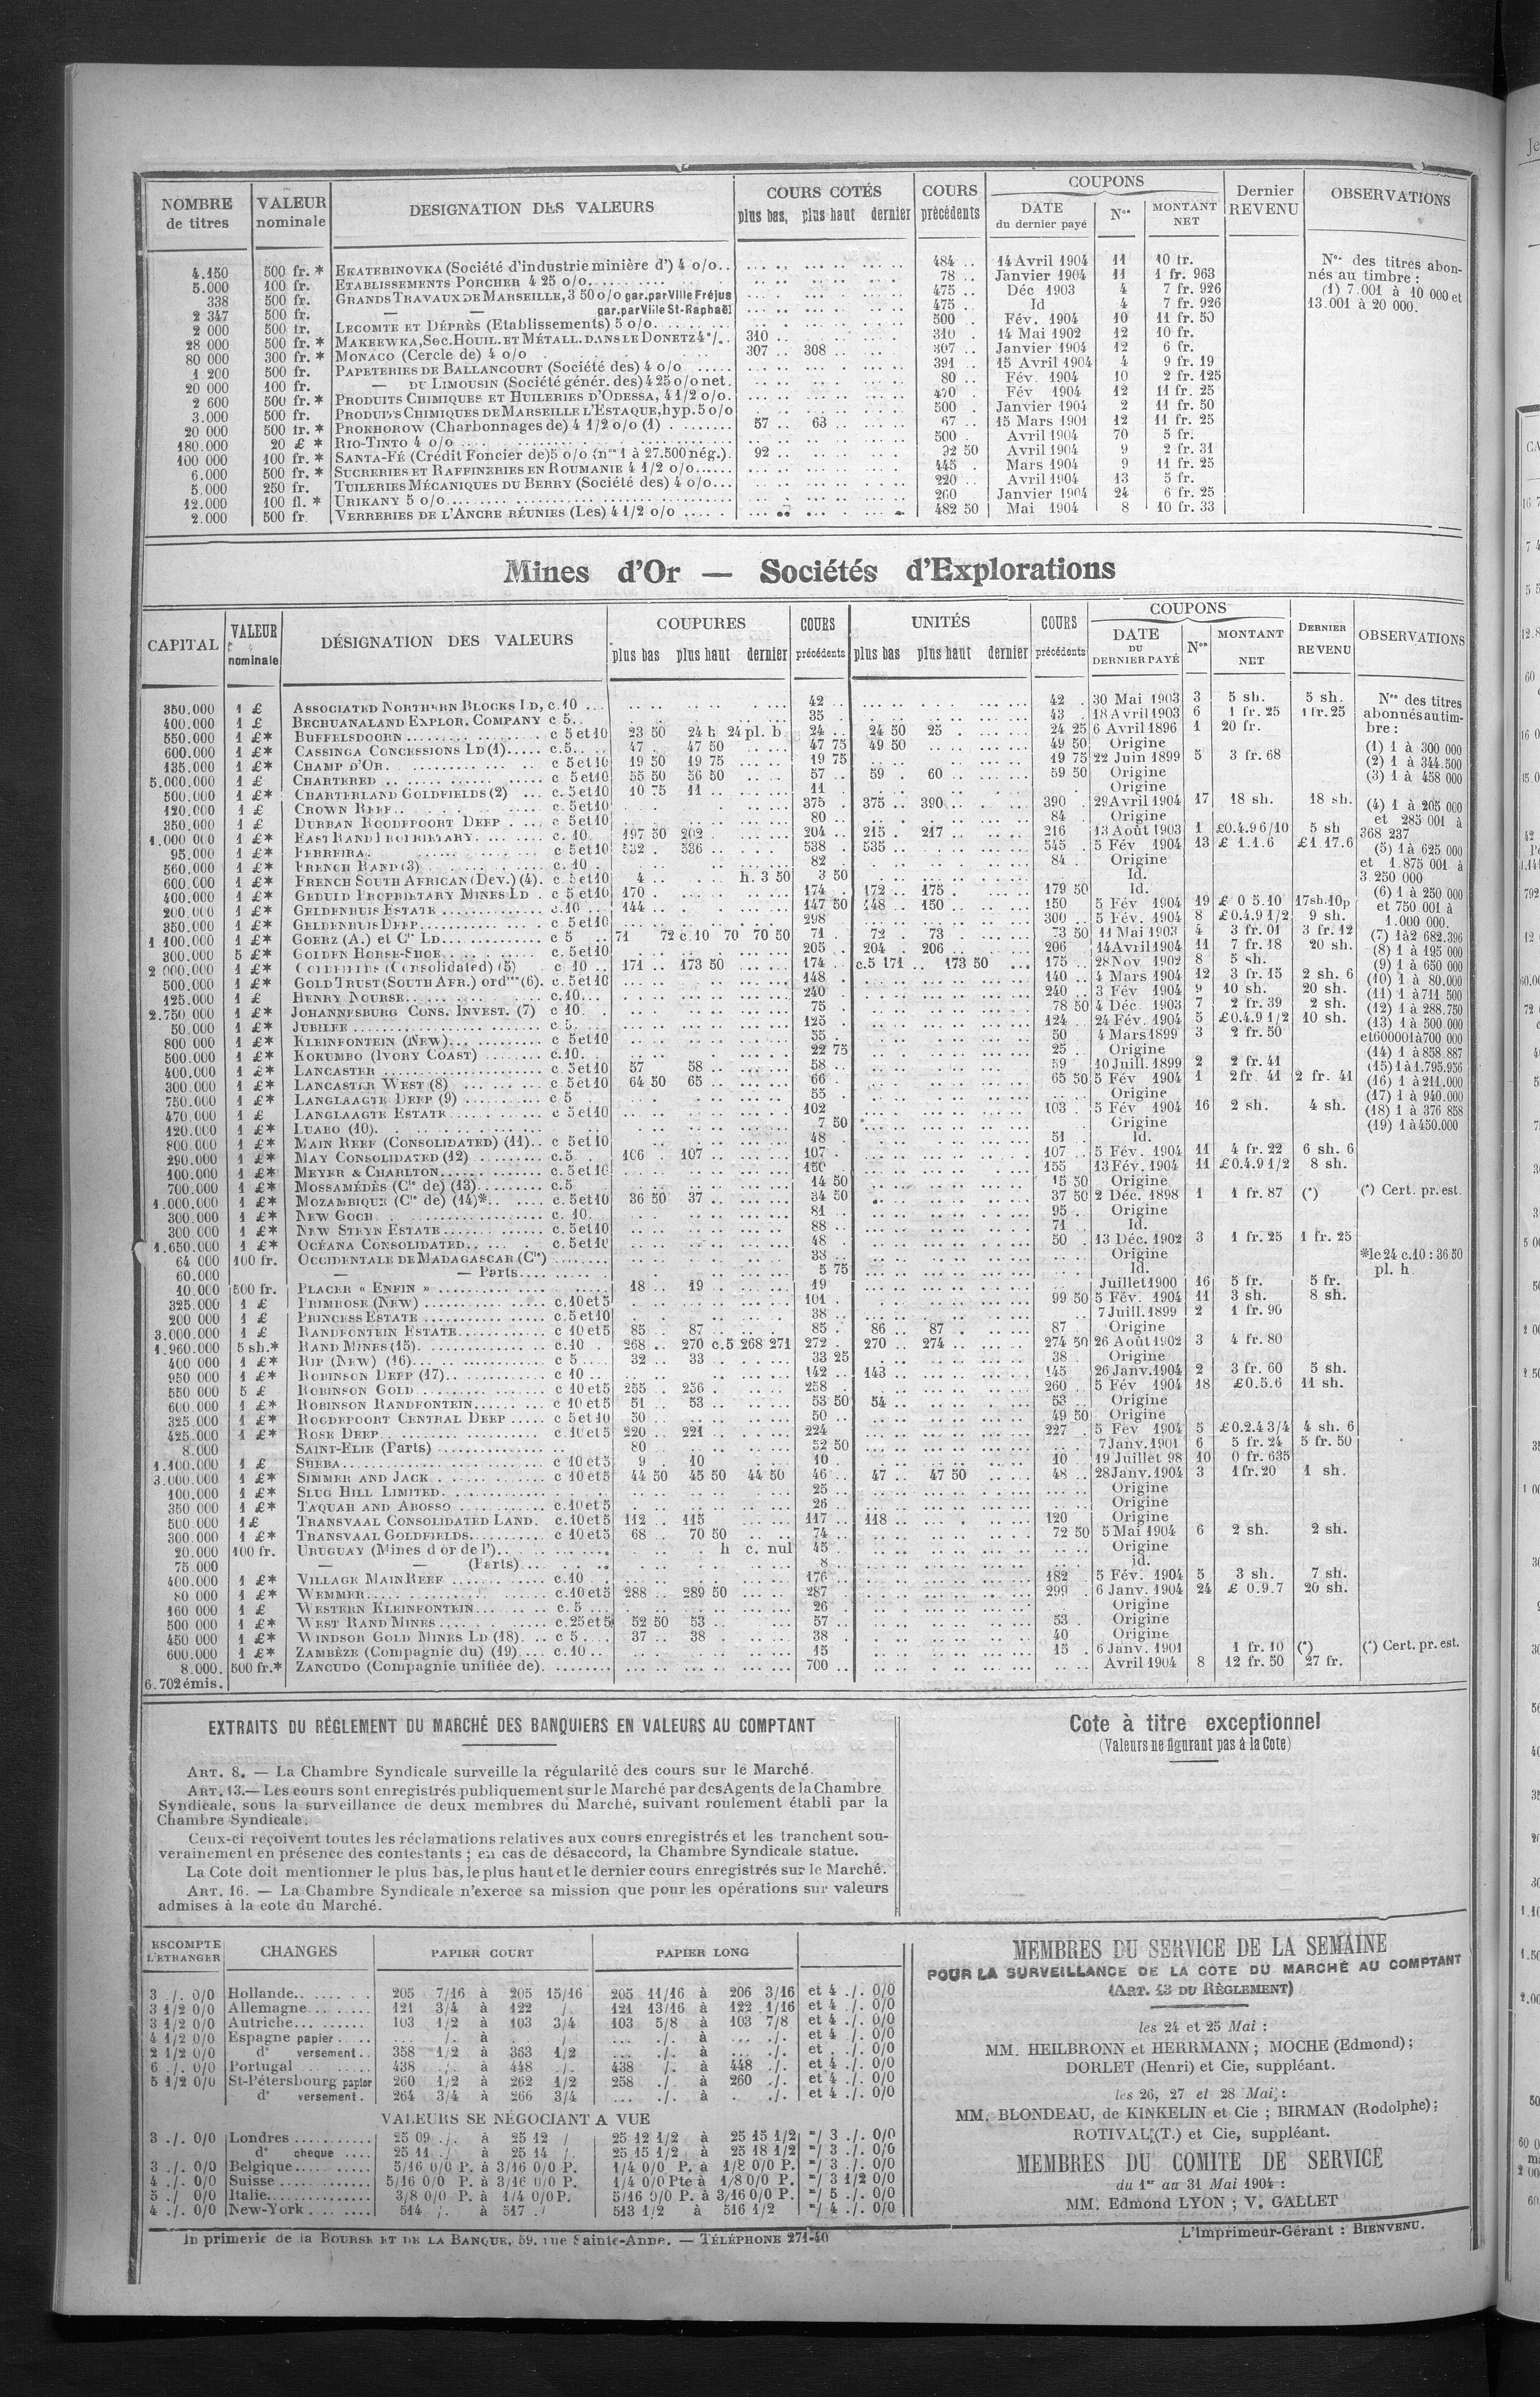 NOMBRE de titres | VALEUR nominale | DESIGNATION DES VALEURS | COURS COTÉS plus bas, plus haut dernier | COURS précédents | COUPONS DATE du dernier payé | Nos | MONTANT NET | Dernier REVENU | OBSERVATIONS
4.150 500 fr. * EKATERINOVKA (Société d'industrie minière d') 4 o/o.. 484 .. 14 Avril 1904 11 10 fr.
5.000 100 fr. ETABLISSEMENTS PORCHER 4 25 o/o. 78 .. Janvier 1904 11 1 fr. 963
338 500 fr. GRANDS TRAVAUX DE MARSEILLE, 3 50 o/o gar. par Ville Fréjus 475 .. Déc 1903 4 7 fr. 926
2 347 500 fr. — — gar. par Ville St-Raphaël 475 .. Id 4 7 fr. 926
2 000 500 fr. LECOMTE ET DÉPRÈS (Etablissements) 5 o/o 500 . Fév. 1904 10 11 fr. 50
28 000 500 fr. * MAKEEWKA, Soc. HOUIL. ET MÉTALL. DANS LE DONETZ 4 °/.. 310 .. 310 . 14 Mai 1902 12 10 fr.
80 000 300 fr. * MONACO (Cercle de) 4 o/o 307 .. 308 .. 307 .. Janvier 1904 12 6 fr.
1 200 500 fr. PAPETERIES DE BALLANCOURT (Société des) 4 o/o 391 .. 15 Avril 1904 4 9 fr. 19
20 000 100 fr. — DU LIMOUSIN (Société génér. des) 4 25 o/o net. 80 .. Fév. 1904 10 2 fr. 125
2 600 500 fr. * PRODUITS CHIMIQUES ET HUILERIES D'ODESSA, 4 1/2 o/o. 470 . Fév 1904 12 11 fr. 25
3.000 500 fr. PRODUITS CHIMIQUES DE MARSEILLE L'ESTAQUE, hyp. 5 o/o 500 . Janvier 1904 2 11 fr. 50
20 000 500 fr. * PROKHOROW (Charbonnages de) 4 1/2 o/o (1) 57 .. 63 .. 67 .. 15 Mars 1901 12 11 fr. 25
180.000 20 £ * RIO-TINTO 4 o/o 500 . Avril 1904 70 5 fr.
100 000 100 fr. * SANTA-FÉ (Crédit Foncier de) 5 o/o (nos 1 à 27.500 nég.). 92 .. 92 50 Avril 1904 9 2 fr. 31
6.000 500 fr. * SUCRERIES ET RAFFINERIES EN ROUMANIE 4 1/2 o/o 445 . Mars 1904 9 11 fr. 25
5.000 250 fr. TUILERIES MÉCANIQUES DU BERRY (Société des) 4 o/o 220 .. Avril 1904 13 5 fr.
12.000 100 fl. * URIKANY 5 o/o 260 Janvier 1904 24 6 fr. 25
2.000 500 fr. VERRERIES DE L'ANCRE RÉUNIES (Les) 4 1/2 o/o 482 50 Mai 1904 8 10 fr. 33
Nos des titres abonnés au timbre :
(1) 7.001 à 10 000 et
13.001 à 20 000.
Mines d'Or — Sociétés d'Explorations
CAPITAL | VALEUR nominale | DÉSIGNATION DES VALEURS | COUPURES plus bas plus haut dernier | COURS précédents | UNITÉS plus bas plus haut dernier | COURS précédents | COUPONS DATE DU DERNIER PAYÉ | Nos | MONTANT NET | DERNIER REVENU | OBSERVATIONS
350.000 1 £ ASSOCIATED NORTHERN BLOCKS LD, c. 10 42 .. 42 . 30 Mai 1903 3 5 sh. 5 sh.
400.000 1 £ BECHUANALAND EXPLOR. COMPANY c 5 35 43 . 18 Avril 1903 6 1 fr. 25 1 fr. 25
550.000 1 £* BUFFELSDOORN c 5 et 10 23 50 24 h 24 pl. b 24 .. 24 50 25 . 24 25 6 Avril 1896 1 20 fr.
600.000 1 £* CASSINGA CONCESSIONS LD (1) c. 5 47 . 47 50 47 75 49 50 49 50 Origine
135.000 1 £* CHAMP D'OR c 5 et 10 19 50 19 75 19 75 19 75 22 Juin 1899 5 3 fr. 68
5.000.000 1 £ CHARTERED c 5 et 10 55 50 56 50 57 .. 59 . 60 .. 59 50 Origine
500.000 1 £* CHARTERLAND GOLDFIELDS (2) c. 5 et 10 10 75 11 .. 11 Origine
120.000 1 £ CROWN REEF c. 5 et 10 375 . 375 .. 390 .. 390 . 29 Avril 1904 17 18 sh. 18 sh.
350.000 1 £ DURBAN ROODEPOORT DEEP c 5 et 10 80 .. 84 . Origine
1.000 000 1 £* EAST RAND PROPRIETARY c. 10 197 50 202 204 .. 215 . 217 .. 216 13 Août 1903 1 £0.4.96/10 5 sh
95.000 1 £* FERREIRA c 5 et 10 532 . 536 .. 538 . 535 .. 545 . 5 Fév 1904 13 £ 1.1.6 £1 17.6
560.000 1 £* FRENCH RAND (3) c. 10 82 84 .. Origine
600.000 1 £* FRENCH SOUTH AFRICAN (Dev.) (4). c. 5 et 10 4 .. h. 3 50 3 50 Id.
400.000 1 £* GEDULD PROPRIETARY MINES LD c 5 et 10 170 . 174 . 172 .. 175 . 179 50 Id.
200.000 1 £* GELDENHUIS ESTATE c. 10 144 .. 147 50 148 .. 150 .. 150 5 Fév 1904 19 £ 0 5.10 17sh.10p
350.000 1 £* GELDENHUIS DEEP c 5 et 10 298 300 .. 5 Fév. 1904 8 £0.4.9 1/2 9 sh.
1 100.000 1 £* GOERZ (A.) et Cie LD c 5 71 72 c. 10 70 70 50 71 . 72 . 73 . 73 50 11 Mai 1903 4 3 fr. 01 3 fr. 12
300.000 5 £* GOLDEN HORSE-SHOE c. 5 et 10 205 . 204 . 206 .. 206 14 Avril 1904 11 7 fr. 18 20 sh.
2 000.000 1 £* GOLDFIELDS (Consolidated) (5) c 10 171 .. 173 50 174 .. c.5 171 .. 173 50 175 .. 28 Nov 1902 8 5 sh.
500.000 1 £* GOLD TRUST (SOUTH AFR.) ord (6). c. 5 et 10 148 . 140 .. 4 Mars 1904 12 3 fr. 15 2 sh. 6
125.000 1 £ HENRY NOURSE c. 10 240 240 .. 3 Fév 1904 9 10 sh. 20 sh.
2.750 000 1 £* JOHANNESBURG CONS. INVEST. (7) c 10 75 . 78 50 4 Déc 1903 7 2 fr. 39 2 sh.
50.000 1 £* JUBILEE c 5 125 . 124 . 24 Fév. 1904 5 £0.4.9 1/2 10 sh.
800 000 1 £* KLEINFONTEIN (NEW) c 5 et 10 55 . 50 4 Mars 1899 3 2 fr. 50
500.000 1 £* KOKUMBO (IVORY COAST) c. 10 22 75 25 . Origine
400.000 1 £* LANCASTER c. 5 et 10 57 58 .. 58 .. 59 . 10 Juill. 1899 2 2 fr. 41
300.000 1 £* LANCASTER WEST (8) c 5 et 10 64 50 65 .. 66 . 65 50 5 Fév 1904 1 2 fr. 41 2 fr. 41
750.000 1 £* LANGLAAGTE DEEP (9) c 5 55 . Origine
470.000 1 £ LANGLAAGTE ESTATE c 5 et 10 102 103 . 5 Fév 1904 16 2 sh. 4 sh.
120.000 1 £* LUABO (10) 7 50 Origine
800.000 1 £* MAIN REEF (CONSOLIDATED) (11) c 5 et 10 48 51 . Id.
290.000 1 £* MAY CONSOLIDATED (12) c. 5 106 . 107 .. 107 . 107 .. 5 Fév. 1904 11 4 fr. 22 6 sh. 6
100.000 1 £* MEYER & CHARLTON c. 5 et 10 150 155 13 Fév. 1904 11 £0.4.9 1/2 8 sh.
700.000 1 £* MOSSAMÉDÈS (Cie de) (13) c. 5 14 50 15 50 Origine
1.000.000 1 £* MOZAMBIQUE (Cie de) (14)* c. 5 et 10 36 50 37 .. 34 50 37 50 2 Déc. 1898 1 1 fr. 87 (*)
300.000 1 £* NEW GOCH c. 10 81 95 . Origine
300 000 1 £* NEW STEYN ESTATE c. 5 et 10 88 .. 71 Id.
1.650.000 1 £* OCÉANA CONSOLIDATED c. 5 et 10 48 . 50 . 13 Déc. 1902 3 1 fr. 25 1 fr. 25
64 000 100 fr. OCCIDENTALE DE MADAGASCAR (Cie) 33 .. Origine
60.000 — — Parts 5 75 Id.
10.000 500 fr. PLACER « ENFIN » 18 .. 19 .. 19 Juillet 1900 16 5 fr. 5 fr.
325.000 1 £ PRIMROSE (NEW) c. 10 et 5 101 . 99 50 5 Fév. 1904 11 3 sh. 8 sh.
200 000 1 £ PRINCESS ESTATE c. 5 et 10 38 .. 7 Juill. 1899 2 1 fr. 90
3.000.000 1 £ RANDFONTEIN ESTATE c 10 et 5 85 . 87 . 85 . 86 .. 87 . 87 . Origine
1.960.000 5 sh.* RAND MINES (15) c. 10 268 .. 270 c. 5 268 271 272 . 270 .. 274 .. 274 50 26 Août 1902 3 4 fr. 80
400 000 1 £* RIP (NEW) (16) c 5 32 .. 33 . 33 25 38 . Origine
950 000 1 £* ROBINSON DEEP (17) c 10 142 .. 143 .. 145 26 Janv. 1904 2 3 fr. 60 5 sh.
550 000 5 £ ROBINSON GOLD c 10 et 5 255 . 256 . 258 . 260 .. 5 Fév 1904 18 £0.5.6 11 sh.
600.000 1 £* ROBINSON RANDFONTEIN c 10 et 5 51 . 53 .. 53 50 54 .. 53 .. Origine
325.000 1 £* ROODEPOORT CENTRAL DEEP c 5 et 10 50 50 .. 49 50 Origine
425.000 1 £* ROSE DEEP c. 10 et 5 220 .. 221 . 224 227 . 5 Fév 1904 5 £0.2.4 3/4 4 sh. 6
8.000 SAINT-ELIE (Parts) 80 52 50 7 Janv. 1901 6 5 fr. 24 5 fr. 50
1.100.000 1 £ SHEBA c 10 et 5 9 . 10 10 . 10 . 19 Juillet 98 10 0 fr. 635
3.000.000 1 £* SIMMER AND JACK c 10 et 5 44 50 45 50 44 50 46 .. 47 .. 47 50 48 .. 28 Janv. 1904 3 1 fr. 20 1 sh.
100.000 1 £* SLUG HILL LIMITED 25 .. Origine
350 000 1 £* TAQUAH AND ABOSSO c. 10 et 5 26 Origine
500 000 1 £ TRANSVAAL CONSOLIDATED LAND. c. 10 et 5 112 .. 115 117 .. 118 .. 120 Origine
300.000 1 £* TRANSVAAL GOLDFIELDS c 10 et 5 68 .. 70 50 74 .. 72 50 5 Mai 1904 6 2 sh. 2 sh.
20.000 100 fr. URUGUAY (Mines d or de l') h c. nul 45 . Origine
75.000 — — (Parts) 8 id.
400.000 1 £* VILLAGE MAIN REEF c. 10 176 182 . 5 Fév. 1904 5 3 sh. 7 sh.
80 000 1 £* WEMMER c. 10 et 5 288 .. 289 50 287 . 299 . 6 Janv. 1904 24 £ 0.9.7 20 sh.
160 000 1 £ WESTERN KLEINFONTEIN c. 5 26 . Origine
500 000 1 £* WEST RAND MINES c. 25 et 5 52 50 53 .. 57 .. 53 Origine
450 000 1 £* WINDSOR GOLD MINES LD (18) c 5 37 .. 38 . 38 . 40 Origine
600.000 1 £* ZAMBÈZE (Compagnie du) (19) c. 10 15 15 . 6 Janv. 1901 1 fr. 10 (*)
8.000. 500 fr.* ZANCUDO (Compagnie unifiée de). 700 .. Avril 1904 8 12 fr. 50 27 fr.
6.702 émis.
Nos des titres
abonnés au tim-
bre :
(1) 1 à 300 000
(2) 1 à 344.500
(3) 1 à 458 000
(4) 1 à 205 000
et 285 001 à
368 237
(5) 1 à 625 000
et 1.875 001 à
3.250 000
(6) 1 à 250 000
et 750 001 à
1.000 000.
(7) 1 à 2 682.396
(8) 1 à 195 000
(9) 1 à 650 000
(10) 1 à 80.000
(11) 1 à 711 500
(12) 1 à 288.750
(13) 1 à 500 000
et 600001 à 700 000
(14) 1 à 858.887
(15) 1 à 1.795.956
(16) 1 à 211.000
(17) 1 à 940.000
(18) 1 à 376 858
(19) 1 à 450.000
(*) Cert. pr. est.
*le 24 c. 10 : 36 50
pl. h
(*) Cert. pr. est.
EXTRAITS DU RÉGLEMENT DU MARCHÉ DES BANQUIERS EN VALEURS AU COMPTANT
ART. 8. — La Chambre Syndicale surveille la régularité des cours sur le Marché.
ART. 13. — Les cours sont enregistrés publiquement sur le Marché par des Agents de la Chambre
Syndicale, sous la surveillance de deux membres du Marché, suivant roulement établi par la
Chambre Syndicale.
Ceux-ci reçoivent toutes les réclamations relatives aux cours enregistrés et les tranchent sou-
verainement en présence des contestants ; en cas de désaccord, la Chambre Syndicale statue.
La Cote doit mentionner le plus bas, le plus haut et le dernier cours enregistrés sur le Marché.
ART. 16. — La Chambre Syndicale n'exerce sa mission que pour les opérations sur valeurs
admises à la cote du Marché.
Cote à titre exceptionnel
(Valeurs ne figurant pas à la Cote)
ESCOMPTE L'ETRANGER | CHANGES | PAPIER COURT | PAPIER LONG
3 ./. 0/0 Hollande 205 7/16 à 205 15/16 205 11/16 à 206 3/16 et 4 ./. 0/0
3 1/2 0/0 Allemagne 121 3/4 à 122 /. 121 13/16 à 122 1/16 et 4 ./. 0/0
3 1/2 0/0 Autriche 103 1/2 à 103 3/4 103 5/8 à 103 7/8 et 4 ./. 0/0
4 1/2 0/0 Espagne papier ... /. à . / ... ./. à ... ./. et 4 ./. 0/0
2 1/2 0/0 d° versement 358 1/2 à 363 1/2 ... ./. à ... ./. et . ./. 0/0
6 ./. 0/0 Portugal 438 ./. à 448 /. 438 /. à 448 ./. et 4 ./. 0/0
5 1/2 0/0 St-Pétersbourg papier 260 1/2 à 262 1/2 258 ./. à 260 ./. et 4 ./. 0/0
d° versement. 264 3/4 à 266 3/4 ... ./. à . ./. et 4 ./. 0/0
VALEURS SE NÉGOCIANT A VUE
3 ./. 0/0 Londres 25 09 ./. à 25 12 / 25 12 1/2 à 25 15 1/2 =/ 3 ./. 0/0
d° cheque 25 11 ./ à 25 14 / 25 15 1/2 à 25 18 1/2 =/ 3 ./. 0/0
3 ./. 0/0 Belgique 5/16 0/0 P. à 3/16 0/0 P. 1/4 0/0 P. à 1/8 0/0 P. =/ 3 ./. 0/0
4 ./. 0/0 Suisse 5/16 0/0 P. à 3/16 0/0 P. 1/4 0/0 Pte à 1/8 0/0 P. =/ 3 1/2 0/0
5 ./ 0/0 Italie 3/8 0/0 P. à 1/4 0/0 P. 5/16 0/0 P. à 3/16 0/0 P. =/ 5 ./. 0/0
4 ./. 0/0 New-York 514 /. à 517 ./ 513 1/2 à 516 1/2 =/ 4 ./. 0/0
MEMBRES DU SERVICE DE LA SEMAINE
POUR LA SURVEILLANCE DE LA COTE DU MARCHÉ AU COMPTANT
(ART. 13 DU RÈGLEMENT)
les 24 et 25 Mai :
MM. HEILBRONN et HERRMANN ; MOCHE (Edmond) ;
DORLET (Henri) et Cie, suppléant.
les 26, 27 et 28 Mai, :
MM. BLONDEAU, de KINKELIN et Cie ; BIRMAN (Rodolphe) ;
ROTIVAL (T.) et Cie, suppléant.
MEMBRES DU COMITE DE SERVICE
du 1er au 31 Mai 1904 :
MM. Edmond LYON ; V. GALLET
Imprimerie de la BOURSE ET DE LA BANQUE, 59, rue Sainte-Anne. — TÉLÉPHONE 271-40
L'Imprimeur-Gérant : BIENVENU.